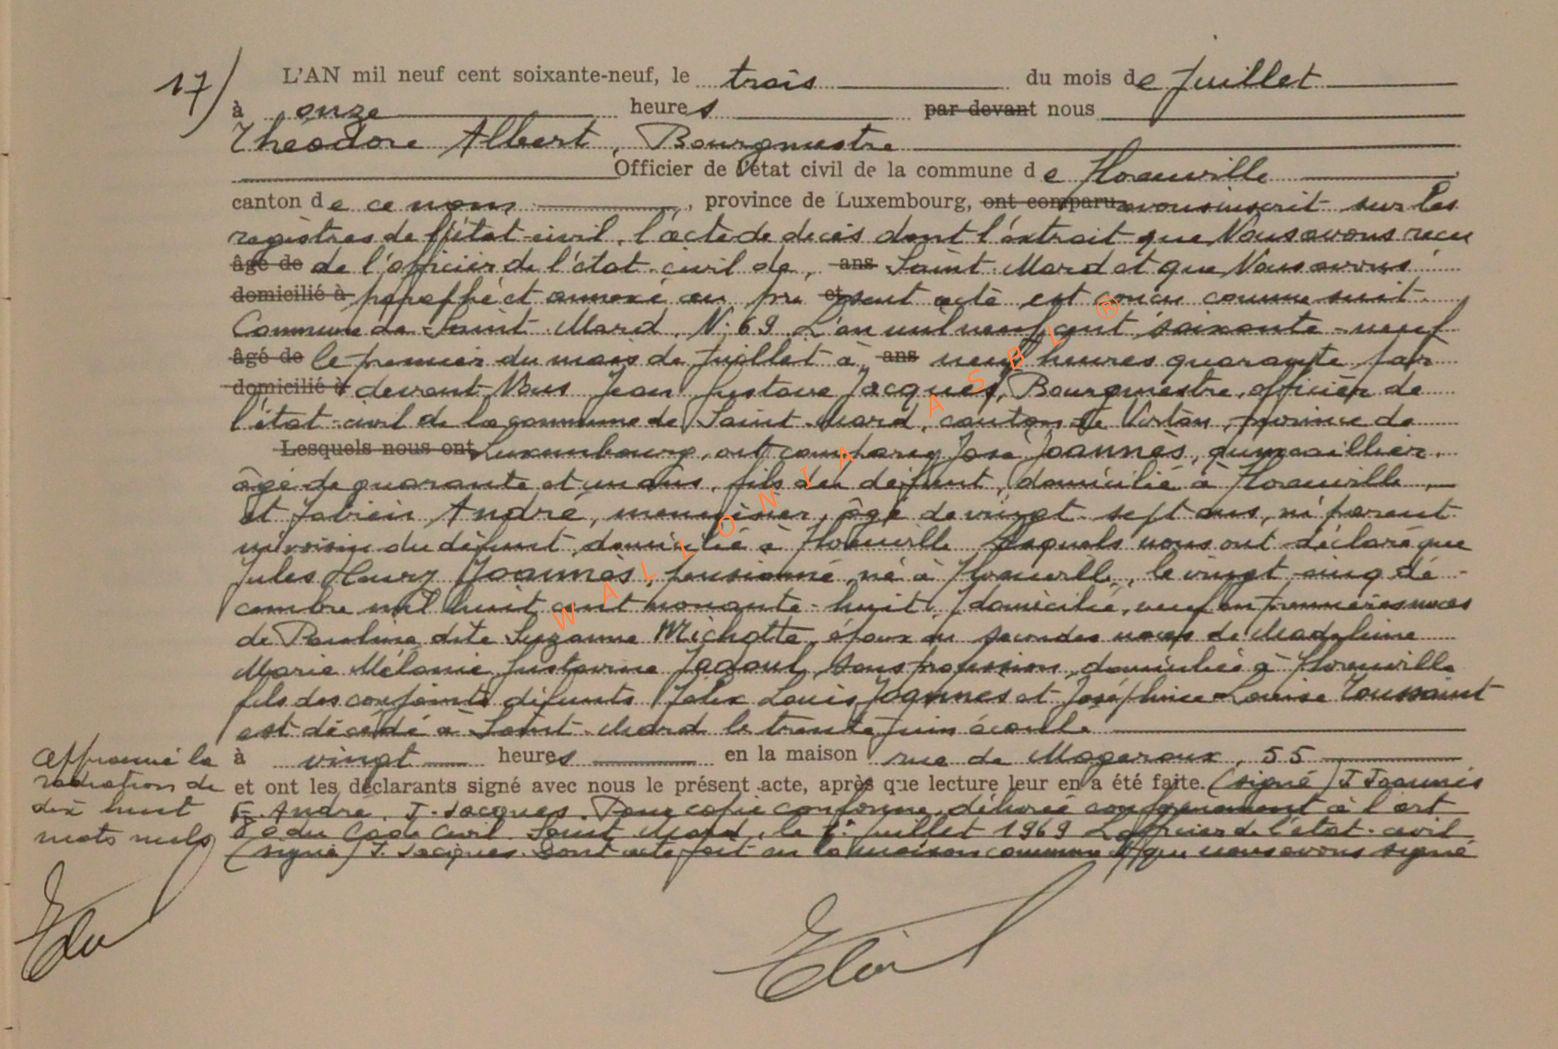 17/ L'AN mil neuf cent soixante-neuf, le trois du mois de Juillet
à onze heures par devant nous
Théodore Albert, Bourgmestre
Officier de l'état civil de la commune de Florenville
canton de ce nom, province de Luxembourg, ont comparu avons inscrit sur les
registres de l'état-civil, l'acte de décès dont l'extrait que Nous avons reçu
âgé de de l'officier de l'état-civil de, ans Saint Mard et que Nous avons
domicilié à paraphé et annexé au pré et sent acte est conçu comme suit.
Commune de Saint-Mard. N° 69 L'an mil neuf cent soixante-neuf
âgé de le premier du mois de Juillet à ans neuf heures quarante par
domicilié à devant Nous Jean Gustave Jacques, Bourgmestre, officier de
l'état-civil de la commune de Saint-Mard, canton de Virton, province de
Lesquels nous ont Luxembourg, ont comparu José Joannès, quincaillier,
âgé de quarante et un ans, fils du défunt, domicilié à Florenville,
et Fabien André, menuisier, âgé de vingt-sept ans, ni parent
ni voisin du défunt, domicilié à Florenville lesquels nous ont déclaré que
Jules Henry Joannès, pensionné, né à Florenville, le vingt-cinq dé-
cembre mil huit cent nonante-huit, domicilié, veuf en premières noces
de Pauline dite Suzanne Michotte, époux en secondes noces de Madeleine
Marie Mélanie Justorine Jacoul, sans profession, domiciliée à Florenville
fils des conjoints défunts Félix Louis Joannes et Joséphine Louise Toussaint
est décédé à Saint-Mard le trente Juin écoulé
à vingt heures en la maison rue de Mageroux, 55
et ont les déclarants signé avec nous le présent acte, après que lecture leur en a été faite. (signé) J Joannès
F. André. J. Jacques. Pour copie conforme, délivrée conformément à l'art
80 du Code Civil Saint Mard, le 1er Juillet 1969 L'officier de l'état-civil
(signé) J. Jacques. Dont acte fait en la maison commune et que nous avons signé
Approuvé la
radiation de
dix huit
mots nuls
WALLONIA ASBL ®